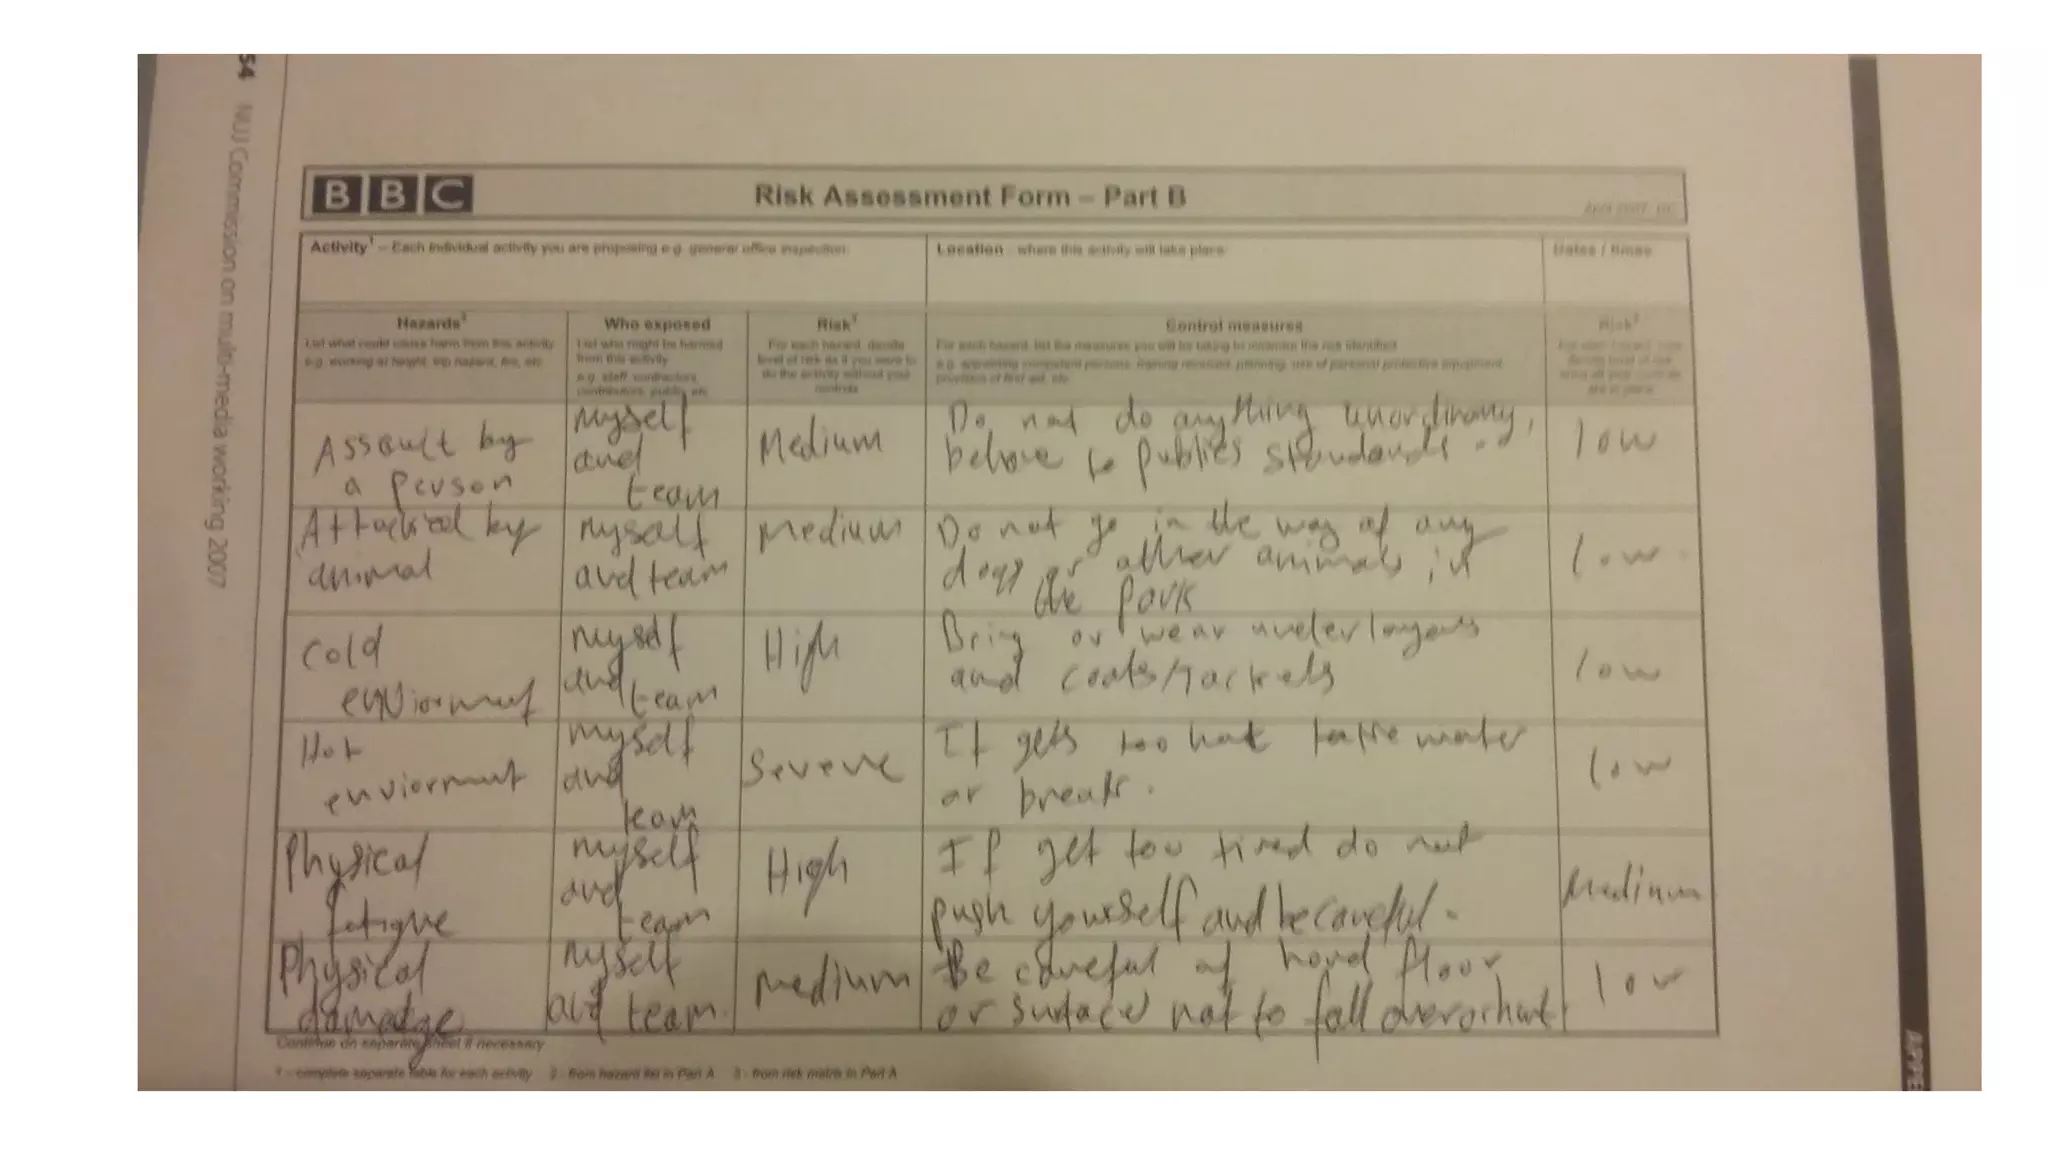 54 NUJ Commission on multi-media working 2007
BBC
Risk Assessment Form – Part B
Activity¹ – Each individual activity you are proposing e.g. general office inspection
Location - where this activity will take place
Dates / times
Hazards²
List what could cause harm from this activity
e.g. working at height, trip hazard, fire, etc
Who exposed
List who might be harmed
from this activity
e.g. staff, contractors,
contributors, public, etc
Risk³
For each hazard, decide
level of risk as if you were to
do the activity without your
controls
Control measures
For each hazard, list the measures you will be taking to minimise the risk identified
e.g. appointing competent persons, training received, planning, use of personal protective equipment,
provision of first aid, etc
Risk³
Assault by
a person
myself
and
team
Medium
Do not do anything unordinary,
behave to publics standards
low
Attacked by
animal
myself
and team
Medium
Do not go in the way of any
dogs or other animals in
the park
low
Cold
enviorment
myself
and
team
High
Bring or wear underlayers
and coats/jackets
low
Hot
enviorment
myself
and
team
Severe
If gets too hot take water
or break.
low
Physical
fatigue
myself
and
team
High
If get too tired do not
push yourself and be careful.
Medium
Physical
damadge
myself
and team.
medium
Be careful of hard floor
or surface not to fall over or hurt
low
Continue on separate sheet if necessary
1 - complete separate table for each activity 2 - from hazard list in Part A 3 - from risk matrix in Part A
APPE